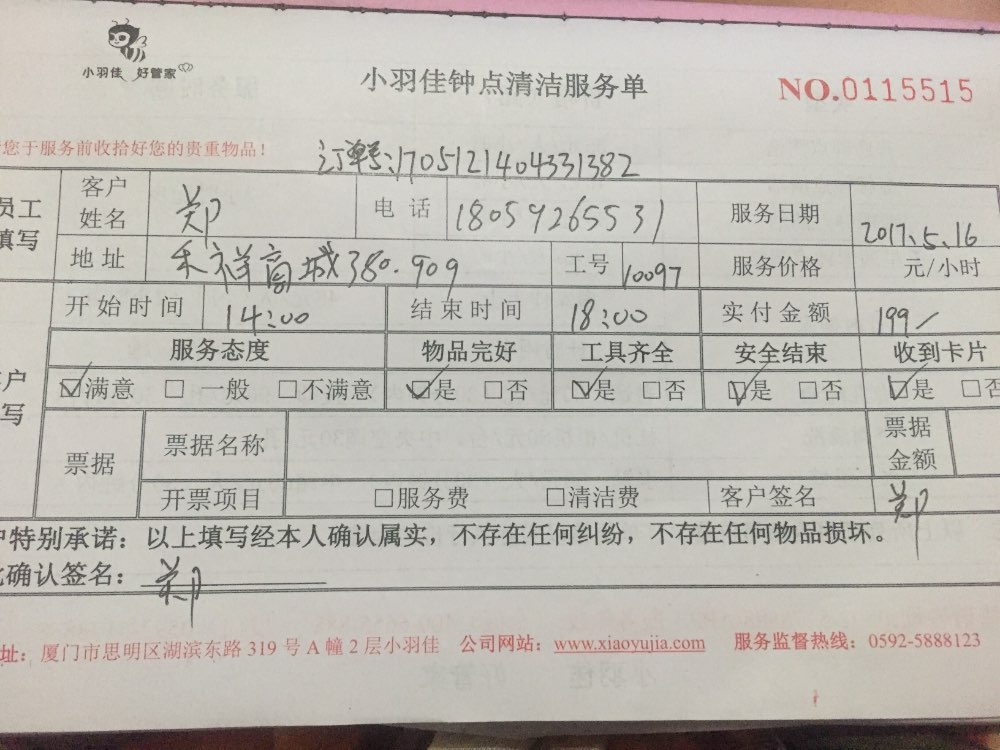 小羽佳 好管家
小羽佳钟点清洁服务单
NO.0115515
您于服务前收拾好您的贵重物品！
订单号:1705121404331382
员工填写
客户姓名 郑 电话 18059265531 服务日期 2017.5.16
地址 禾祥商城380.909 工号 10097 服务价格 元/小时
开始时间 14:00 结束时间 18:00 实付金额 199/
服务态度 物品完好 工具齐全 安全结束 收到卡片
☑满意 □一般 □不满意 ☑是 □否 ☑是 □否 ☑是 □否 ☑是 □否
户写
票据 票据名称 票据金额
开票项目 □服务费 □清洁费 客户签名 郑
户特别承诺：以上填写经本人确认属实，不存在任何纠纷，不存在任何物品损坏。
此确认签名：郑
址：厦门市思明区湖滨东路 319 号 A 幢 2 层小羽佳 公司网站：www.xiaoyujia.com 服务监督热线：0592-5888123